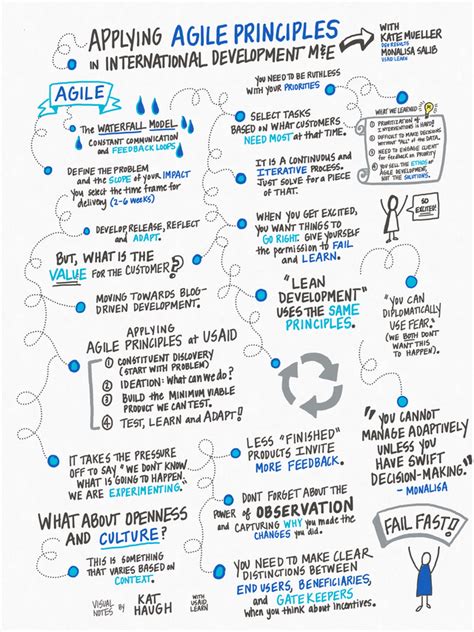 APPLYING AGILE PRINCIPLES
IN INTERNATIONAL DEVELOPMENT M&E
WITH
KATE MUELLER
DEV RESULTS
MONALISA SALIB
USAID LEARN
AGILE
The WATERFALL MODEL.
CONSTANT COMMUNICATION
and FEEDBACK LOOPS
DEFINE THE PROBLEM
and the SCOPE of YOUR IMPACT
You select the time frame for
delivery (2-6 weeks)
DEVELOP, RELEASE, REFLECT
and ADAPT.
BUT, WHAT IS THE
VALUE FOR THE CUSTOMER?
MOVING TOWARDS BLOG-
DRIVEN DEVELOPMENT.
APPLYING
AGILE PRINCIPLES at USAID
1 CONSTITUENT DISCOVERY
(START WITH PROBLEM)
2 IDEATION: What can we do?
3 BUILD the MINIMUM VIABLE
PRODUCT WE CAN TEST.
4 TEST, LEARN and ADAPT!
IT TAKES THE PRESSURE
OFF TO SAY "WE DON'T KNOW
WHAT IS GOING TO HAPPEN."
WE ARE EXPERIMENTING.
WHAT ABOUT OPENNESS
AND CULTURE?
THIS IS SOMETHING
THAT VARIES BASED ON
CONTEXT.
VISUAL
NOTES BY
KAT
HAUGH
WITH
USAID
LEARN
YOU NEED TO BE RUTHLESS
WITH YOUR PRIORITIES
SELECT TASKS
BASED ON WHAT CUSTOMERS
NEED MOST at THAT TIME.
IT IS A CONTINUOUS and
ITERATIVE PROCESS.
JUST SOLVE FOR A PIECE
OF THAT.
WHEN YOU GET EXCITED,
YOU WANT THINGS TO
GO RIGHT. GIVE YOURSELF
the PERMISSION to FAIL
and LEARN.
"LEAN
DEVELOPMENT"
USES THE SAME
PRINCIPLES.
LESS "FINISHED"
PRODUCTS INVITE
MORE FEEDBACK.
DONT FORGET ABOUT the
POWER of OBSERVATION
and CAPTURING WHY YOU MADE the
CHANGES YOU DID.
YOU NEED TO MAKE CLEAR
DISTINCTIONS BETWEEN
END USERS, BENEFICIARIES,
and GATEKEEPERS
WHEN YOU THINK ABOUT INCENTIVES.
WHAT WE LEARNED
1 PRIORITIZATION OF
INTERVENTIONS IS HARD!
2 DIFFICULT TO MAKE DECISIONS
WITHOUT "ALL" OF THE DATA.
3 NEED TO ENGAGE CLIENT
for FEEDBACK on PRIORITY
4 YOU SELL THE ETHOS of
AGILE DEVELOPMENT,
NOT THE SOLUTIONS.
SO
EXCITED!
"YOU CAN
DIPLOMATICALLY
USE FEAR."
(WE BOTH DON'T
WANT THIS
TO HAPPEN).
"YOU CANNOT
MANAGE ADAPTIVELY
UNLESS YOU
HAVE SWIFT
DECISION-MAKING."
- MONALISA
FAIL FAST!!